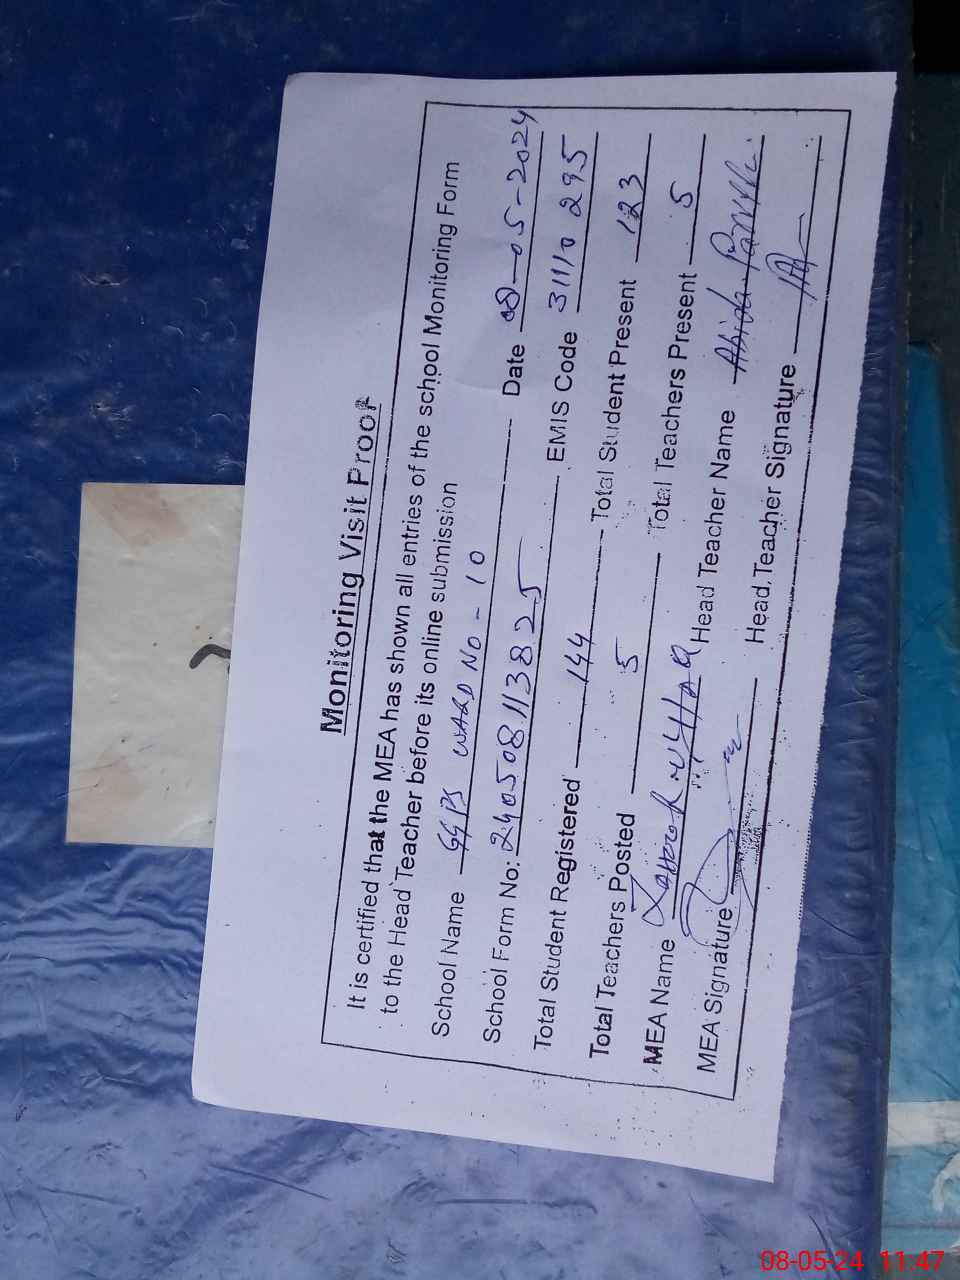 Monitoring Visit Proof
It is certified that the MEA has shown all entries of the school Monitoring Form
to the Head Teacher before its online submission
School Name GGPS WARD NO - 10 Date 08-05-2024
School Form No: 240508113825 EMIS Code 31110295
Total Student Registered 144 Total Student Present 123
Total Teachers Posted 5 Total Teachers Present 5
MEA Name Head Teacher Name Abida Parveen
MEA Signature Head Teacher Signature
08-05-24 11:47